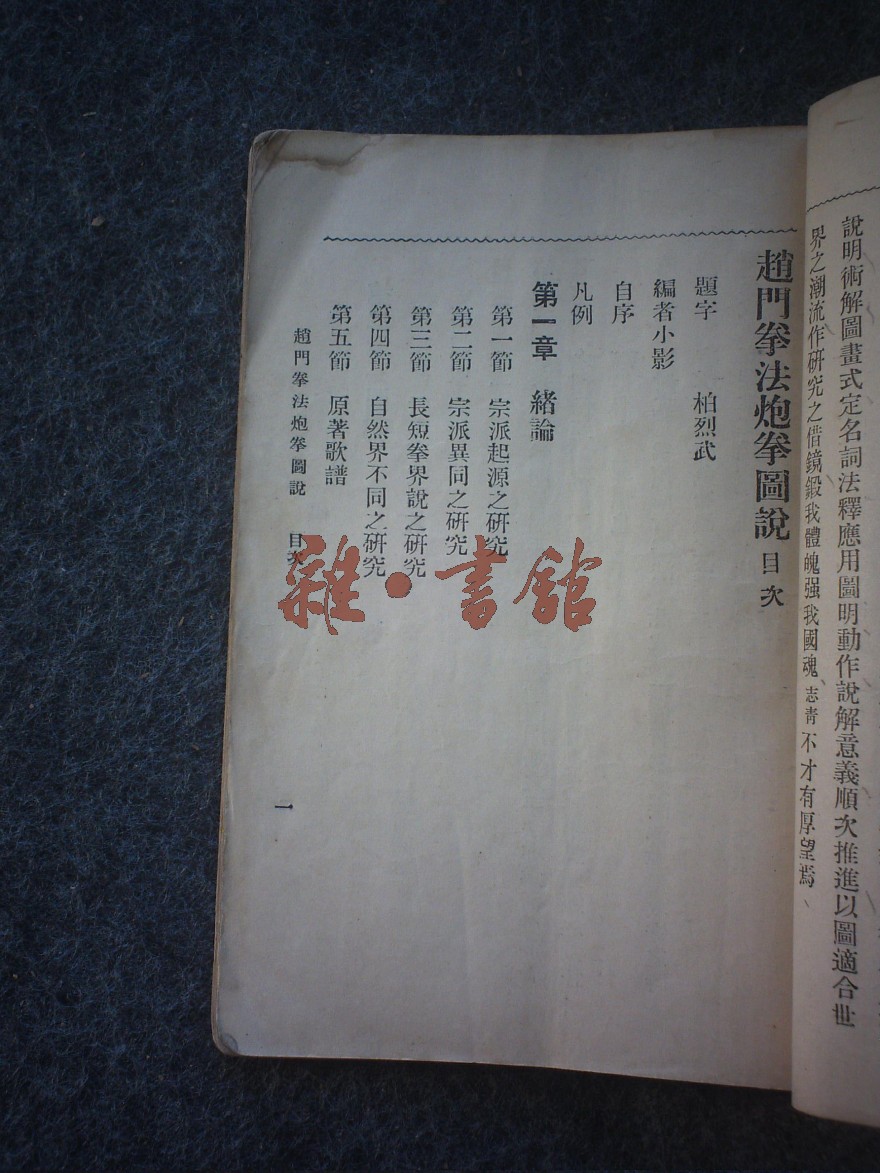 說明術解圖畫式定名詞法釋應用圖明動作說解意義順次推進以圖適合世
界之潮流作硏究之借鏡鍛我體魄强我國魂志靑不才有厚望焉
趙門拳法炮拳圖說 目次
題字 柏烈武
編者小影
自序
凡例
第一章 緒論
第一節 宗派起源之硏究
第二節 宗派異同之硏究
第三節 長短拳界說之硏究
第四節 自然界不同之硏究
第五節 原著歌譜
趙門拳法炮拳圖說 目次
一
雜·書館